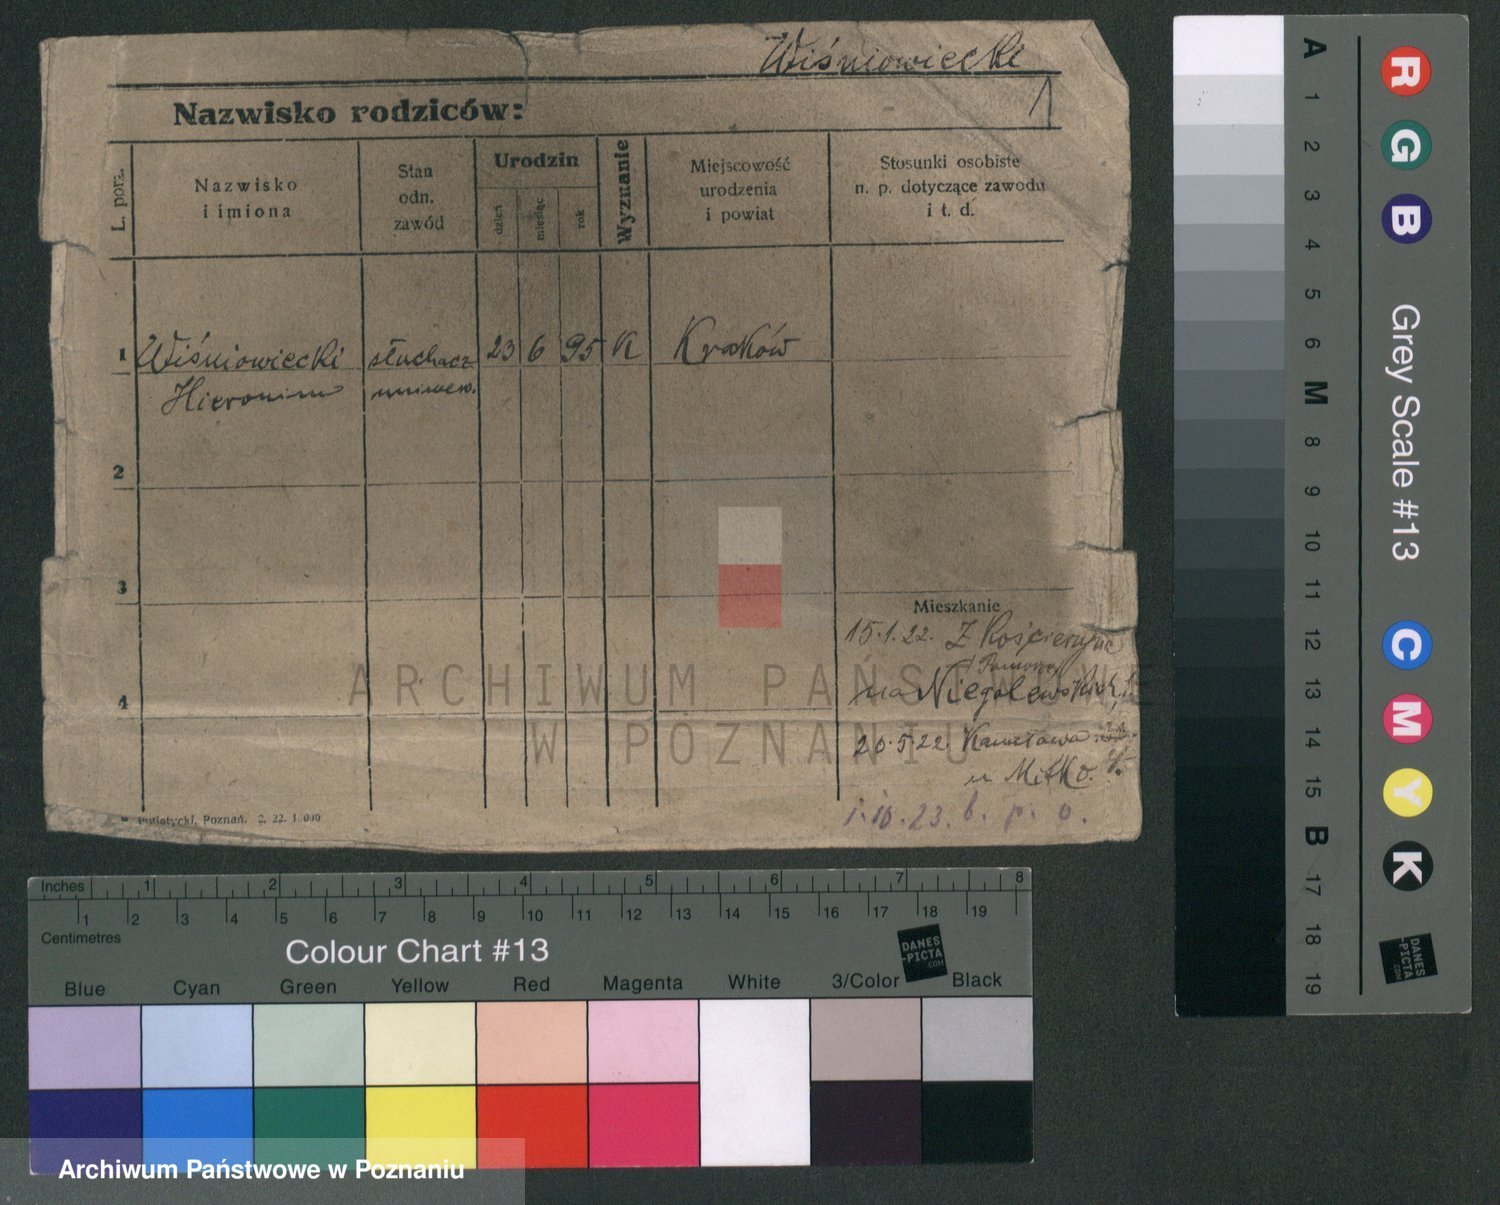 Wiśniowiecki
1
Nazwisko rodziców:
L. porz.
Nazwisko
i imiona
Stan
odn.
zawód
Urodzin
dzień
miesiąc
rok
Wyznanie
Miejscowość
urodzenia
i powiat
Stosunki osobiste
n. p. dotyczące zawodu
i t. d.
1 Wiśniowiecki słuchacz 23 6 95 K Kraków
Hieronim uniwers.
2
3
Mieszkanie
15.1.22. Z Kościerzyne
Pomorze
na Niegolewskich
4
20.5.22
u Mitko.
1.10.23. b. p. o.
Putiatycki, Poznań. 2. 22. 1.000
ARCHIWUM PAŃSTWOWE
W POZNANIU
Inches 1 2 3 4 5 6 7 8
1 2 3 4 5 6 7 8 9 10 11 12 13 14 15 16 17 18 19
Centimetres
Colour Chart #13
DANES
-PICTA
.COM
Blue Cyan Green Yellow Red Magenta White 3/Color Black
Archiwum Państwowe w Poznaniu
A 1 2 3 4 5 6 M 8 9 10 11 12 13 14 15 B 17 18 19
R G B
Grey Scale #13
C M Y K
DANES
-PICTA
.COM